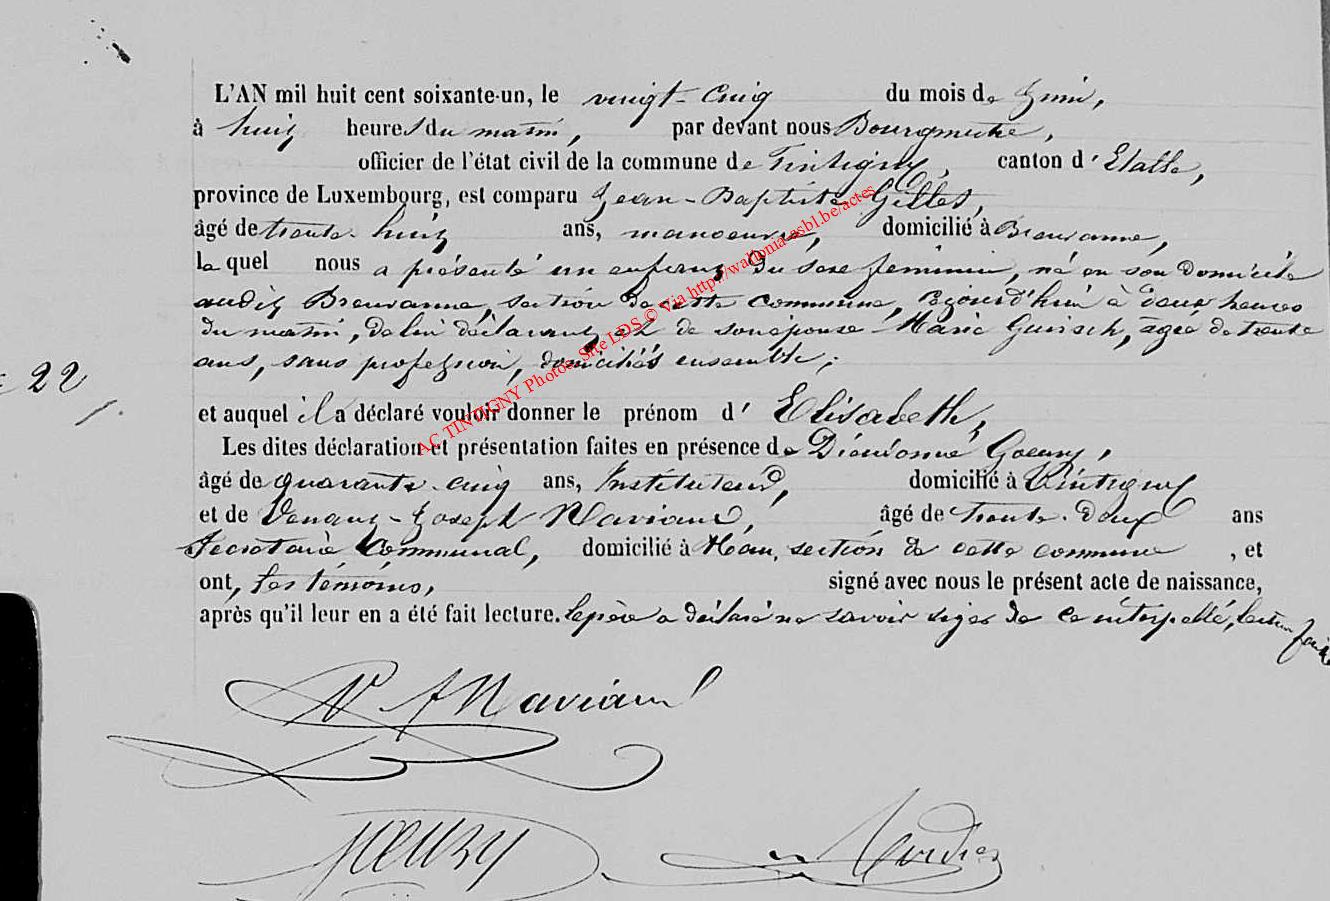 L'AN mil huit cent soixante-un, le vingt-cinq du mois de Juin,
à huit heures du matin, par devant nous Bourgmestre,
officier de l'état civil de la commune de Tintigny, canton d'Etalle,
province de Luxembourg, est comparu Jean-Baptiste Gilles,
âgé de trente-huit ans, manoeuvre, domicilié à Breuvanne,
lequel nous a présenté un enfant du sexe féminin, né en son domicile
audit Breuvanne, section de cette commune, aujourd'hui à deux heures
du matin, de lui déclarant et de son épouse Marie Guirsch, agée de trente
ans, sans profession, domiciliés ensemble;
№ 22
et auquel il a déclaré vouloir donner le prénom d'Elisabeth,
Les dites déclaration et présentation faites en présence de Dieudonné Goeury,
âgé de quarante-cinq ans, Instituteur, domicilié à Tintigny
et de Venant-Joseph Naviaux, âgé de trente-deux ans
Secrétaire Communal, domicilié à Han, section de cette commune, et
ont, les témoins, signé avec nous le présent acte de naissance,
après qu'il leur en a été fait lecture. le père a déclaré ne savoir signer de ce interpellé, lecture faite
V J Naviaux
Goeury
AC TINTIGNY Photos Site LDS © Via http://wallonia-asbl.be/actes